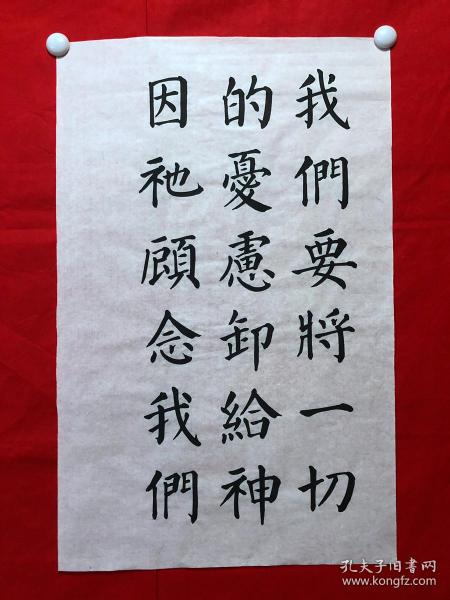 我們要將一切
的憂慮卸給神
因祂顧念我們
孔夫子旧书网
www.kongfz.com